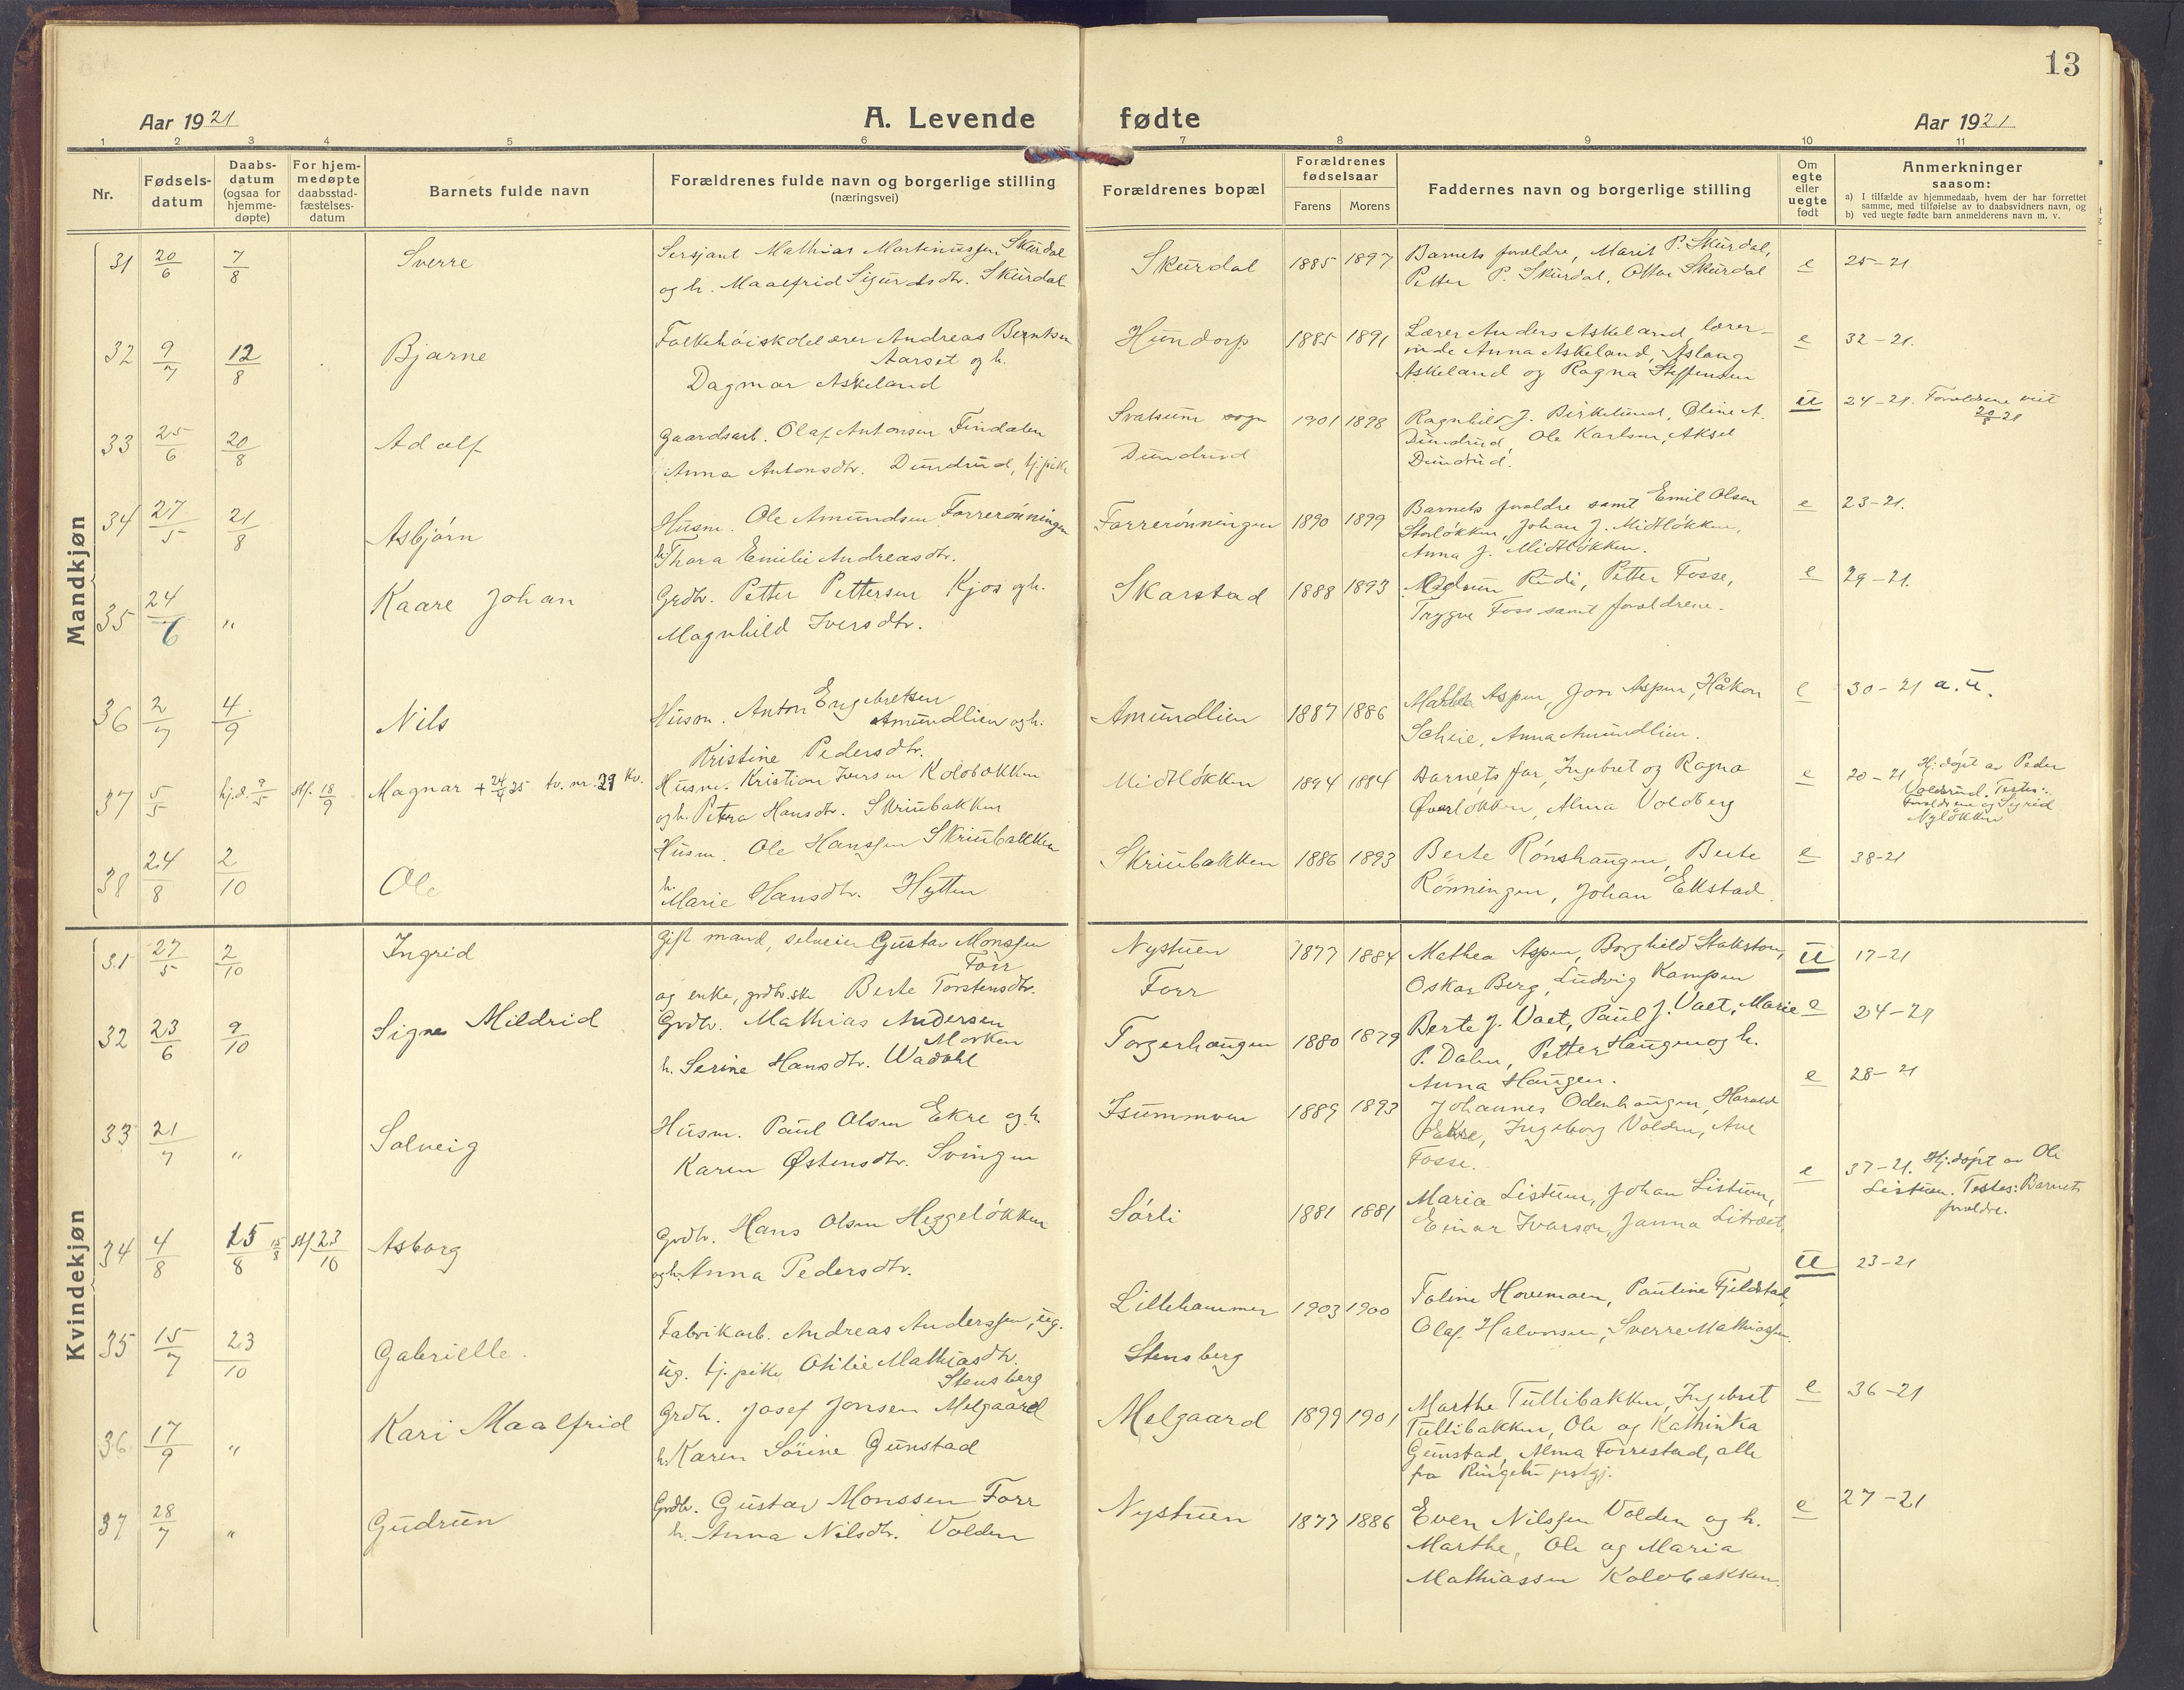 13
Aar 1921
A. Levende fødte
Aar 1921
1 2 3 4 5 6 7 8 9 10 11
Nr.
Fødselsdatum
Daabsdatum (ogsaa for hjemmedøpte)
For hjemmedøpte daabsstadfæstelsesdatum
Barnets fulde navn
Forældrenes fulde navn og borgerlige stilling
(næringsvei)
Forældrenes bopæl
Forældrenes fødselsaar
Farens Morens
Faddernes navn og borgerlige stilling
Om egte eller uegte født
Anmerkninger
saasom:
a) I tilfælde av hjemmedaab, hvem der har forrettet
samme, med tilføielse av to daabsvidners navn, og
b) ved uegte fødte barn anmelderens navn m. v.
Mandkjøn
31 20/6 7/8 Sverre
Sersjant Mathias Martinussen Skurdal
og h. Maalfrid Sigurdsdtr. Skurdal
Skurdal 1885 1897
Barnets forældre, Marit P. Skurdal,
Petter P. Skurdal, Ottar Skurdal
e 25-21.
32 9/7 12/8 Bjarne
Folkehöiskolelærer Andreas Berntsen
Aarset og h.
Dagmar Askeland
Hundorp 1885 1891
Lærer Anders Askeland, lærer-
inde Anna Askeland, Aslaug
Askeland og Ragna Steffensen
e 32-21.
33 25/6 20/8 Adolf
Gaardsarb. Olaf Antonsen Findalen
Anna Antonsdtr. Dundrud, tj.pike
Svatsum sogn
Dundrud
1901 1898
Ragnhild J. Birkelund, Oline A.
Dundrud, Ole Karlsen, Aksel
Dundrud.
u 24-21. Forældrene viet
20/8 21
34 27/5 21/8 Asbjörn
Husm. Ole Amundsen Forrerönningen
h. Thora Emilie Andreasdtr.
Forrerönningen 1890 1899
Barnets forældre samt Emil Olsen
Storløkken, Johan J. Midtløkken,
Anna J. Midtløkken.
e 23-21.
35 24/6 " Kaare Johan
Grdbr. Petter Pettersen Kjos og h.
Magnhild Iversdtr.
Skarstad 1888 1893
Rudi, Petter Fosse,
Trygve Foss samt forældrene.
e 29-21.
36 2/7 4/9 Nils
Husm. Anton Engebretsen
Amundlien og h.
Kristine Pedersdtr.
Amundlien 1887 1886
Mathea Aspen, Jon Aspen, Håkon
Scheie, Anna Amundlien.
e 30-21 a. u.
37 5/5 hj.d. 9/5 stf. 18/9 Magnar + 24/4 35 tv. nr. 29 kv.
Husm. Kristian Iversen Kolobakken
og h. Petra Hansdtr. Skriubakken
Midtløkken 1894 1884
Barnets far, Ingebret og Ragna
Øverløkken, Alma Voldberg
e 20-21 Hj.døpt av Peder
Voldsrud. Testes:
Forældrene og Sigrid
Nyløkken
38 24/8 2/10 Ole
Husm. Ole Hanssen Skriubakken
h. Marie Hansdtr. Hytten
Skriubakken 1886 1893
Berte Rønshaugen, Berte
Rønningen, Johan Ekstad.
e 38-21
Kvindekjøn
31 27/5 2/10 Ingrid
Gift mand, selveier Gustav Monssen
Forr
og enke, grdbr.ske Berte Torstensdtr.
Nystuen
Forr
1877 1884
Mathea Aspen, Borghild Stakston,
Oskar Berg, Ludvig Kampen
u 17-21
32 23/6 9/10 Signe Mildrid
Grdbr. Mathias Andersen
Morken
h. Serine Hansdtr. Wadahl
Torgerhaugen 1880 1879
Berte J. Vaet, Paul J. Vaet, Marie
P. Dalen, Petter Haugen og h.
Anna Haugen.
e 24-21
33 21/7 " Solveig
Husm. Paul Olsen Ekre og h.
Karen Østensdtr. Svingen
Isummoen 1889 1893
Johannes Odenhaugen, Harald
Ekre, Ingeborg Volden, Ane
Fosse.
e 28-21
34 4/8 15/8 15/8 stf 23/10 Asborg
Grdbr. Hans Olsen Heggeløkken
og h. Anna Pedersdtr.
Sörli 1881 1881
Maria Listuen, Johan Listuen,
Einar Ivarson, Janna
e 37-21. Hj.døpt av Ole
Listuen. Testes: Barnets
forældre.
35 15/7 23/10 Gabrielle.
Fabrikarb. Andreas Anderssen, ug.
ug. tj.pike Otilie Mathiasdtr.
Stensberg
Lillehammer
Stensberg
1903 1900
Toline Hovemoen, Pauline Fjeldstad,
Olaf Halvorsen, Sverre Mathiassen.
u 23-21
36 17/9 " Kari Maalfrid
Grdbr. Josef Jonsen Melgaard
h. Karen Sörine Gunstad
Melgaard 1899 1901
Marthe Tullibakken, Ingebret
Tullibakken, Ole og Kathinka
Gunstad, Alma Forrestad, alle
fra Ringebu prstgj.
e 36-21
37 28/7 " Gudrun
Grdbr. Gustav Monssen Forr
h. Anna Nilsdtr. Volden
Nystuen 1877 1886
Even Nilssen Volden og h.
Marthe, Ole og Maria
Mathiassen Kolobakken.
e 27-21